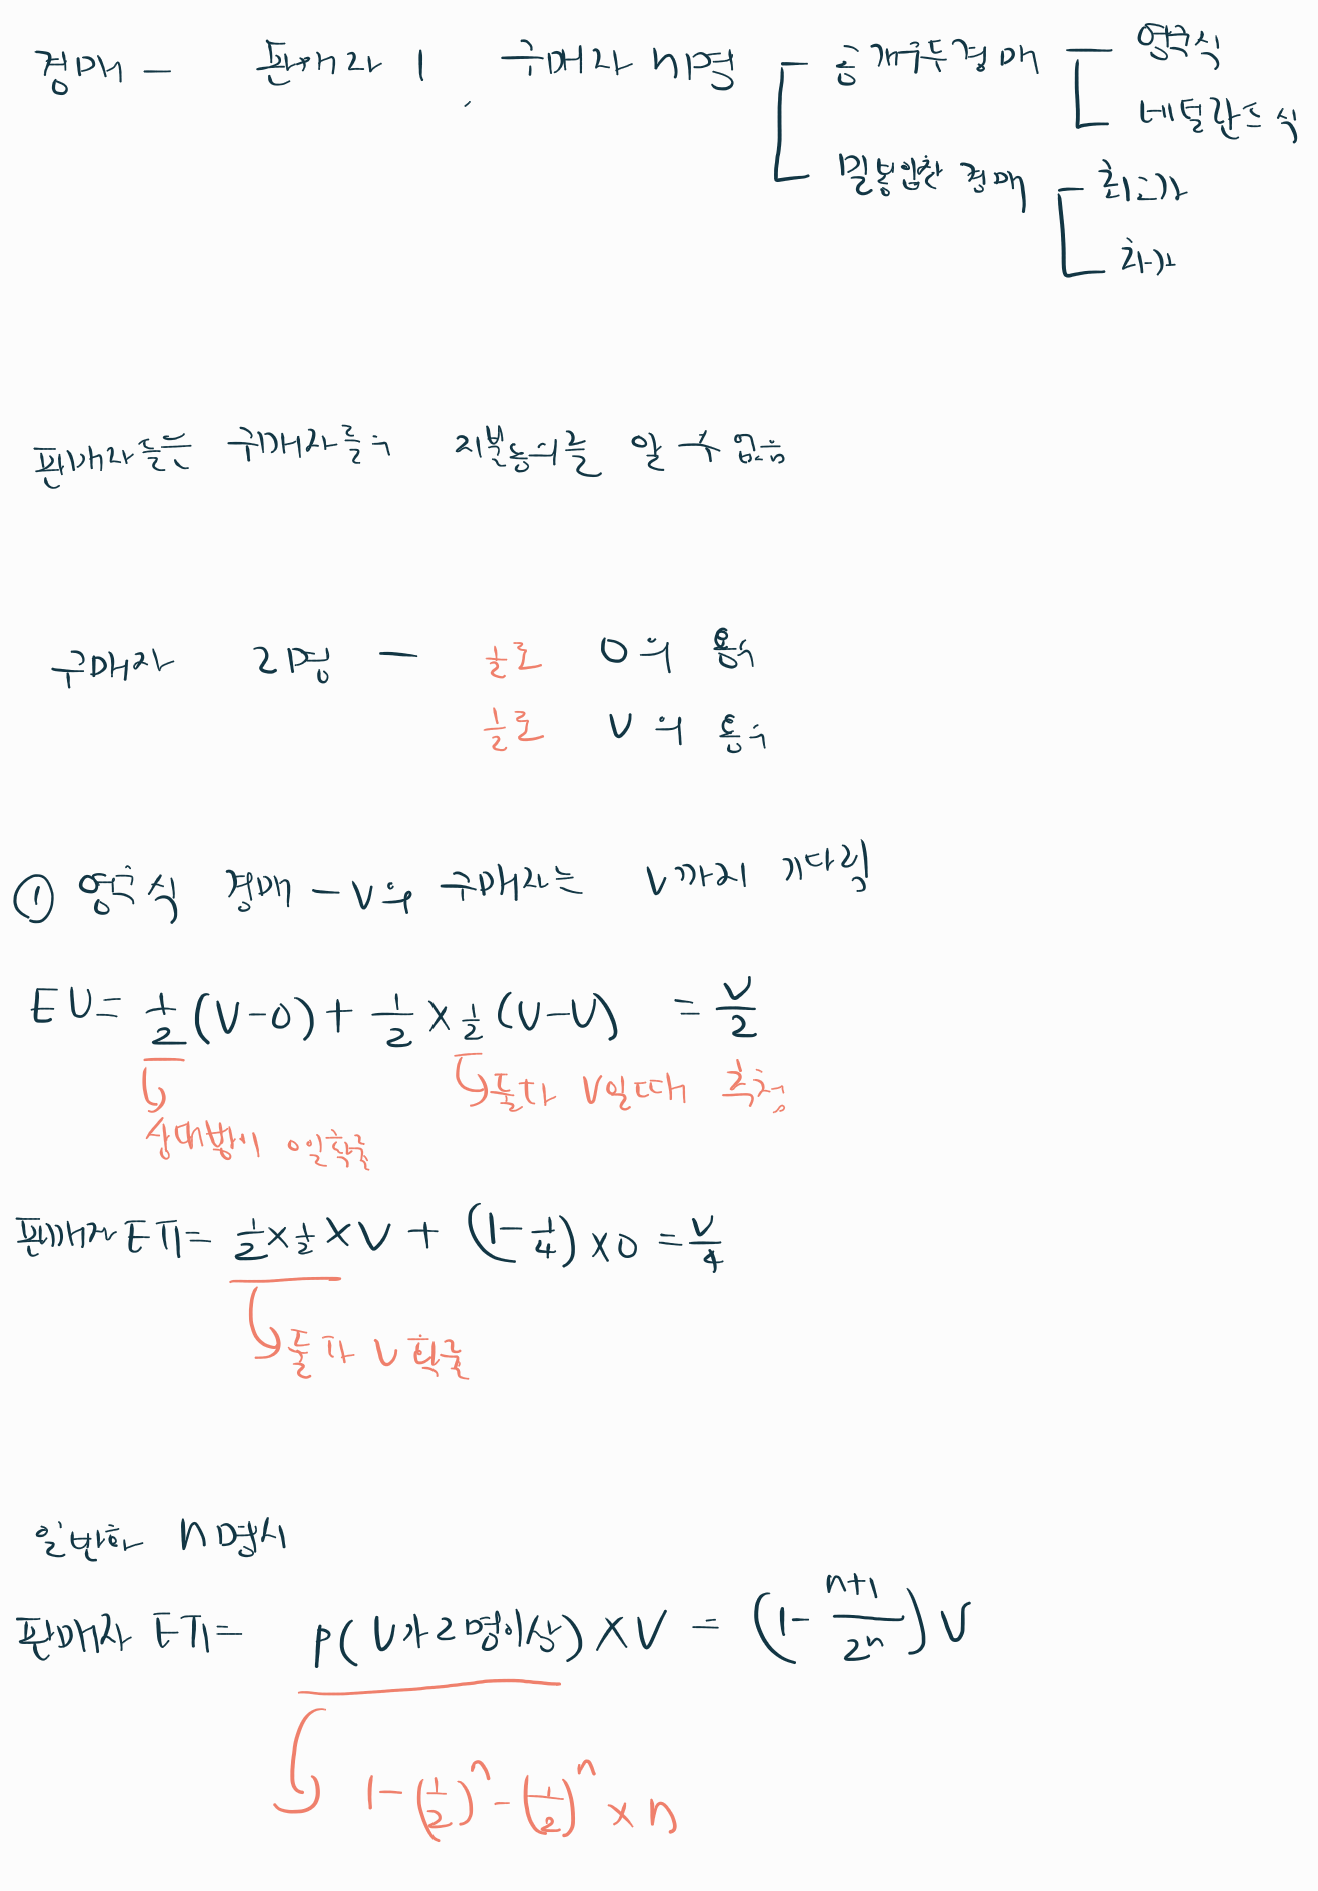 경매 - 판매자 1, 구매자 n명 공개구두경매 - 영국식
네덜란드식
밀봉입찰 경매 최고가
차가
판매자들은 구매자들의 지불용의를 알 수 없음
구매자 2명 - ½로 0의 효용
½로 V의 효용
① 영국식 경매 - V의 구매자는 V까지 기다림
EU = 1/2 (V-0) + 1/2 × 1/2 (V-V) = V/2
둘다 V일때 추첨
상대방이 0일확률
판매자 Eπ = 1/2 × 1/2 × V + (1 - 1/4) × 0 = V/4
둘다 V확률
일반화 n명시
판매자 Eπ = P(V가 2명이상) × V = (1 - (n+1)/2ⁿ) V
1 - (1/2)ⁿ - (1/2)ⁿ × n